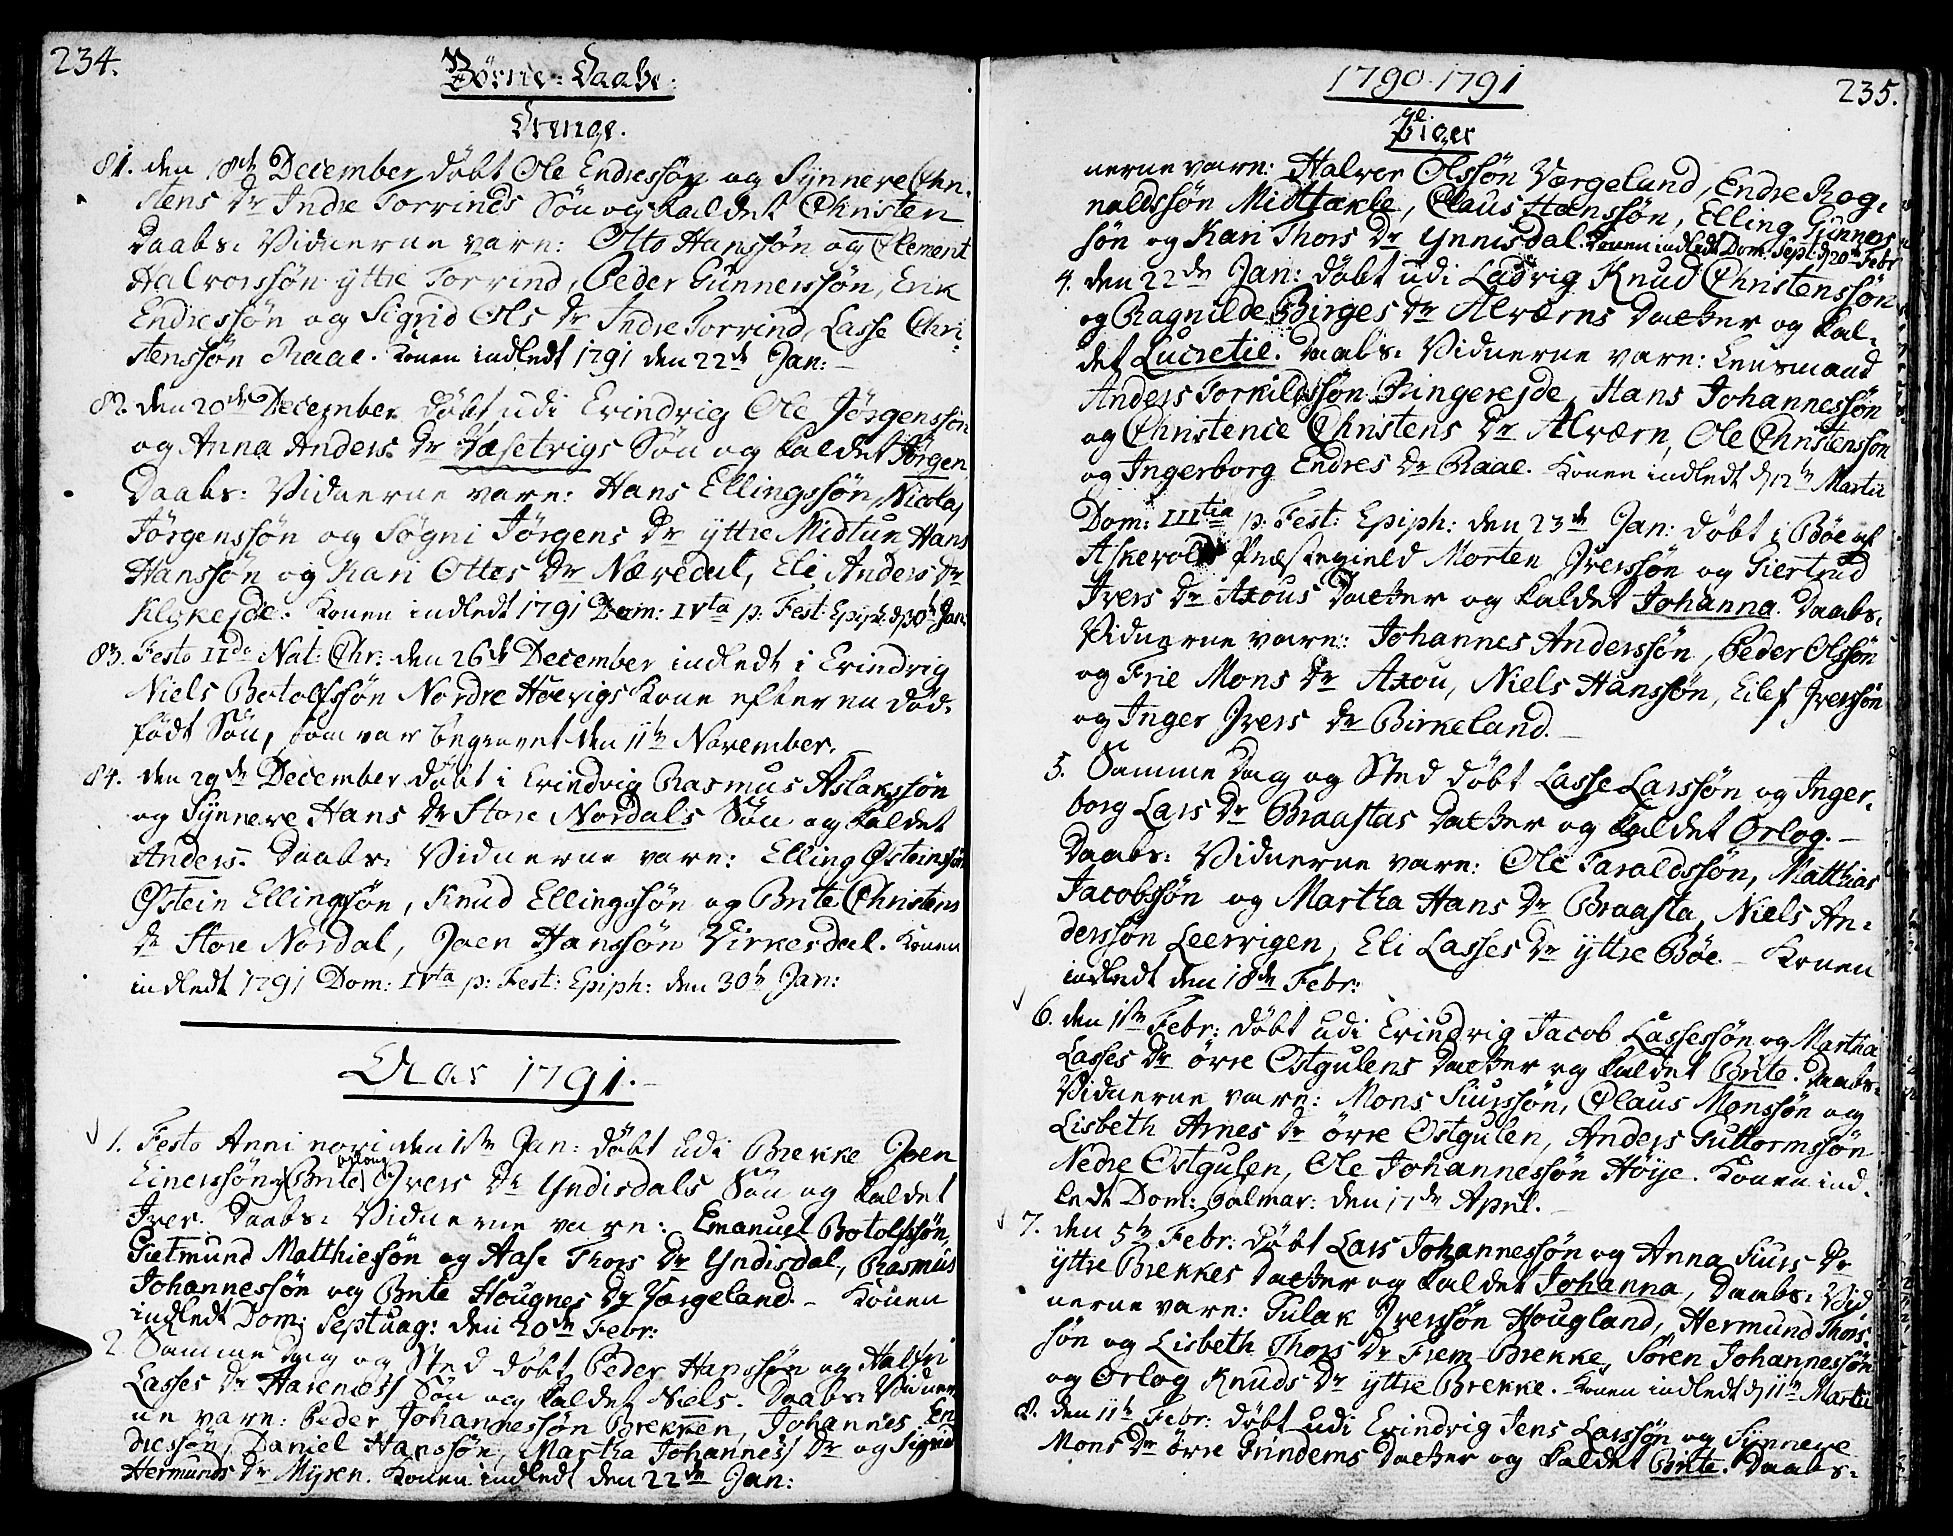 234.
Börne-Daabe.
Drenge.
81. den 18de December döbt Ole Endressön og Synneve Chri-
stens Dr Indre Torvinds Sön og kaldet Christen
Daabs: Vidnerne vare: Otto Hanssön og Clement
Halvorssön yttre Torvind, Peder Gunnerssön, Erik
Endressön og Sigrid Ols Dr Indre Torvind, Lasse Chri-
stenssön Raae. Konen indledt 1791 den 22de Jan:
82. den 20de December döbt udi Evindvig Ole Jörgenssön
og Anna Anders Dr Væsetvigs Sön og kaldet Jörgen
Daabs: Vidnerne vare: Hans Ellingssön, Nicolaj
Jörgenssön og Sögni Jörgens Dr yttre Midtun, Hans
Hanssön og Kari Ottes Dr Næredal, Eli Anders Dr
Klokejde. Konen indledt 1791 Dom: IVta p: Fest: Epiph: d 30te Jan:
83. Festo IIdo Nat: Chr: den 26de December indledt i Evindvig
Niels Botolfssön Nordre Hoevigs Kone efter en död-
födt Sön, som var begravet den 11te November.
84. den 29de December döbt i Evindvig Rasmus Aslakssön
og Synneve Hans Dr Store Nordals Sön og kaldet
Anders. Daabs: Vidnerne vare: Elling Östeinssön
Östein Ellingssön, Knud Ellingssön og Brite Christens
Dr Store Nordal, Joen Hanssön Virkesdal. Konen
indledt 1791 Dom: IVta p: Fest: Epiph: den 30te Jan:
Aar 1791.
1. Festo Anni novi den 1ste Jan: döbt udi Brekke Joen
Einerssön og Brite Ivers Dr Yndisdals Sön og kaldet
Iver. Daabs: Vidnerne vare: Emanuel Botolfssön,
Gietmund Matthiesön og Aase Thors Dr Yndisdal, Rasmus
Johannessön og Brite Hougnes DrVærgeland. Konen
indledt Dom: Septuag: den 20de Febr:
2. Samme Dag og Sted döbt Peder Hanssön og Halfri
Lasses Dr Sön og kaldet Niels. Daabs: Vidner-
ne vare: Peder Johannessön Brekken, Johannes En-
dressön, Daniel Hanssön, Martha Johannes Dr og Sigrid
Hermunds Dr Myren. Konen indledt den 22de Jan:
1790-1791
235.
Piger
nerne vare: Halvor Olssön Værgeland, Endre Rog-
naldssön Midttækle, Claus Hanssön, Elling Gunners
sön og Kari Thors Dr Ynnisdal. Konen indledt Dom: Sept: d 20de Febr
4. den 22de Jan: döbt udi Ladvig Knud Christenssön
og Ragnilde Birges Dr Alværns Datter og kal-
det Lucretie. Daabs: Vidnerne vare: Lensmand
Anders Torkildssön Ringerejde, Hans Johannessön
og Christence Christens Dr Alværn, Ole Christenssön
og Ingerborg Endres Dr Raae. Konen indledt d 12te Martii
Dom: IIItia p: Fest: Epiph: den 23de Jan: döbt i Böe af
Askevold Præstegield Morten Iverssön og Giertrud
Ivers Dr Axous Datter og kaldet Johanna. Daabs:
Vidnerne vare: Johannes Anderssön, Peder Olssön
og Frie Mons Dr Axou, Niels Hanssön, Eilef Iverssön
og Inger Ivers Dr Birkeland.
5. Samme Dag og Sted döbt Lasse Larssön og Inger-
borg Lars Dr Braastas Datter og kaldet Orlog.
Daabs: Vidnerne vare: Ole Taraldssön, Matthias
Jacobssön og Martha Hans Dr Braasta, Niels An-
derssön Leervigen, Eli Lasses Dr yttre Böe. Konen
indledt den 18de Febr:
6. den 1ste Febr: döbt udi Evindvig Jacob Lassessön og Martha
Lasses Dr övre Ostgulens Datter og kaldet Brite. Daabs:
Vidnerne vare: Mons Siurssön, Claus Monssön og
Lisbeth Arnes Dr övre Ostgulen, Anders Guttormssön
Nedre Ostgulen, Ole Johannessön Höije. Konen ind-
ledt Dom: Palmar: den 17de April.
7. den 5te Febr: döbt Lars Johannessön og Anna Siurs Dr
yttre Brekkes Datter og kaldet Johanna, Daabs: Vid
nerne vare: Tulak Iverssön Hougland, Hermund Thors-
sön og Lisbeth Thors Dr Frem-Brekke, Sören Johannessön
og Orlog Knuds Dr yttre Brekke. Konen indledt d 11te Martii
8. den 11te Febr: döbt udi Evindvig Jens Larssön og Synneve
Mons Dr övre Datter og kaldet Brite. Daabs: